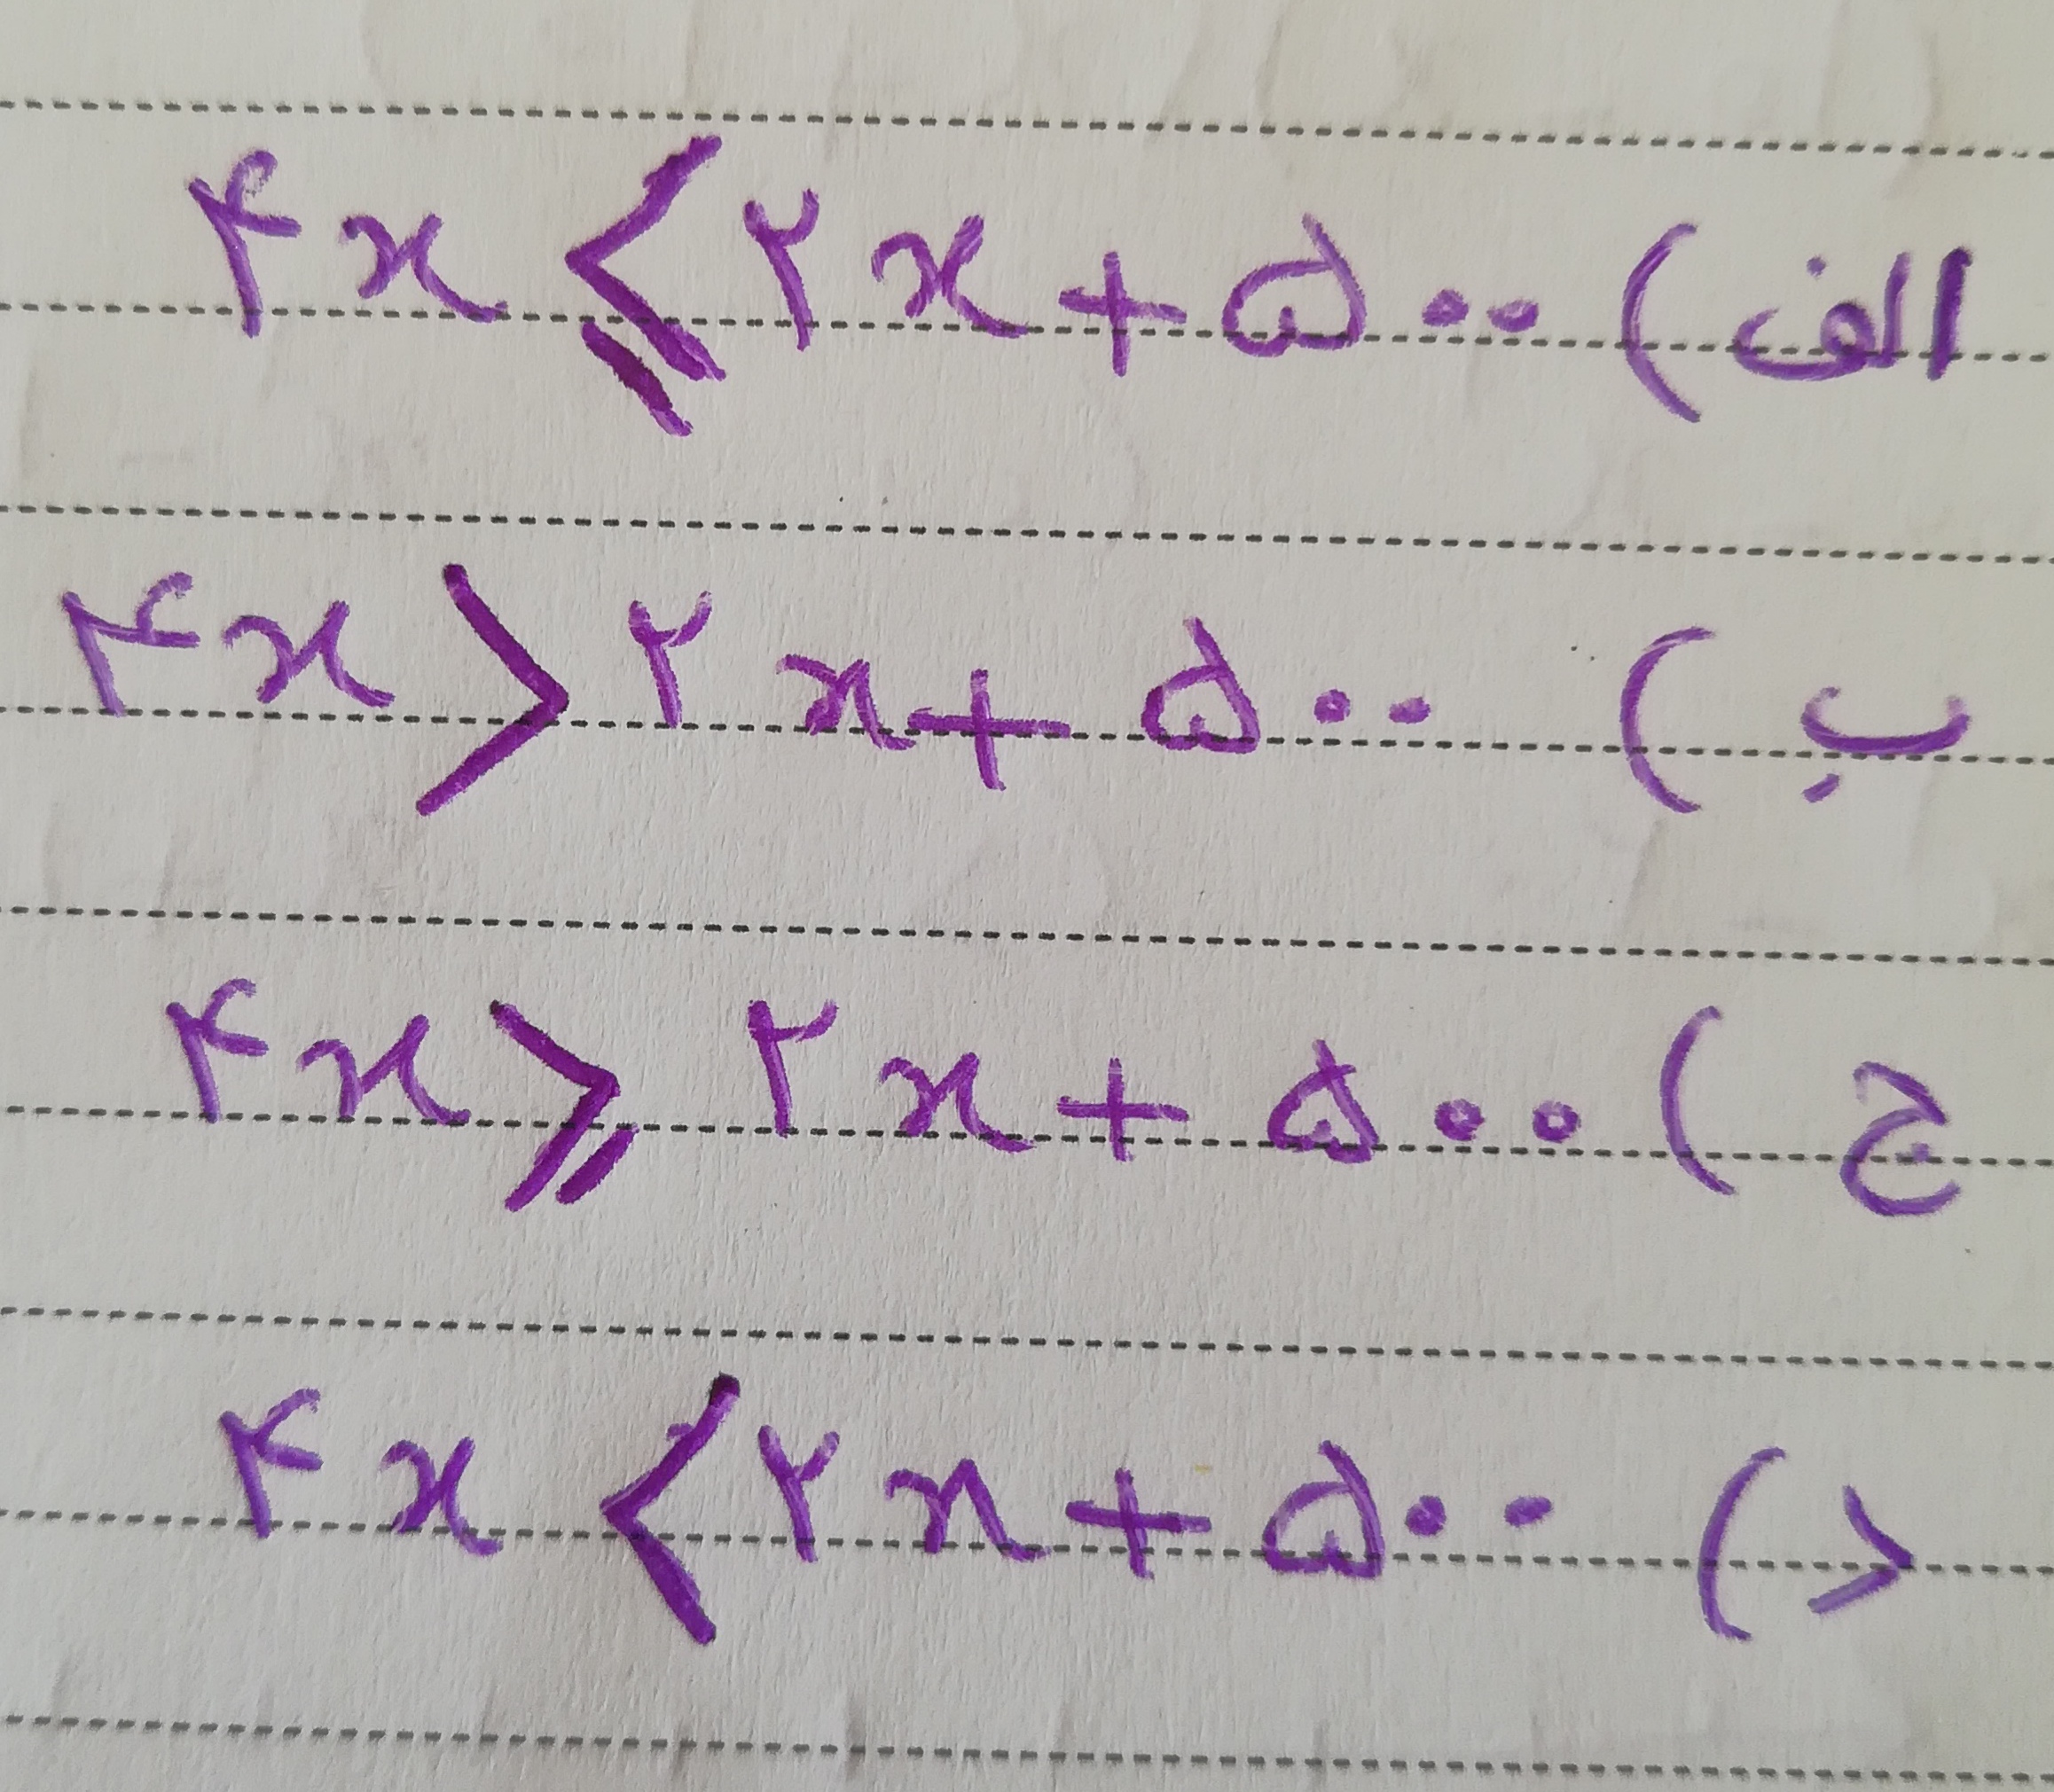 الف) ۴x ≤ ۲x + ۵۰۰
ب) ۴x > ۲x + ۵۰۰
ج) ۴x ≥ ۲x + ۵۰۰
د) ۴x < ۲x + ۵۰۰